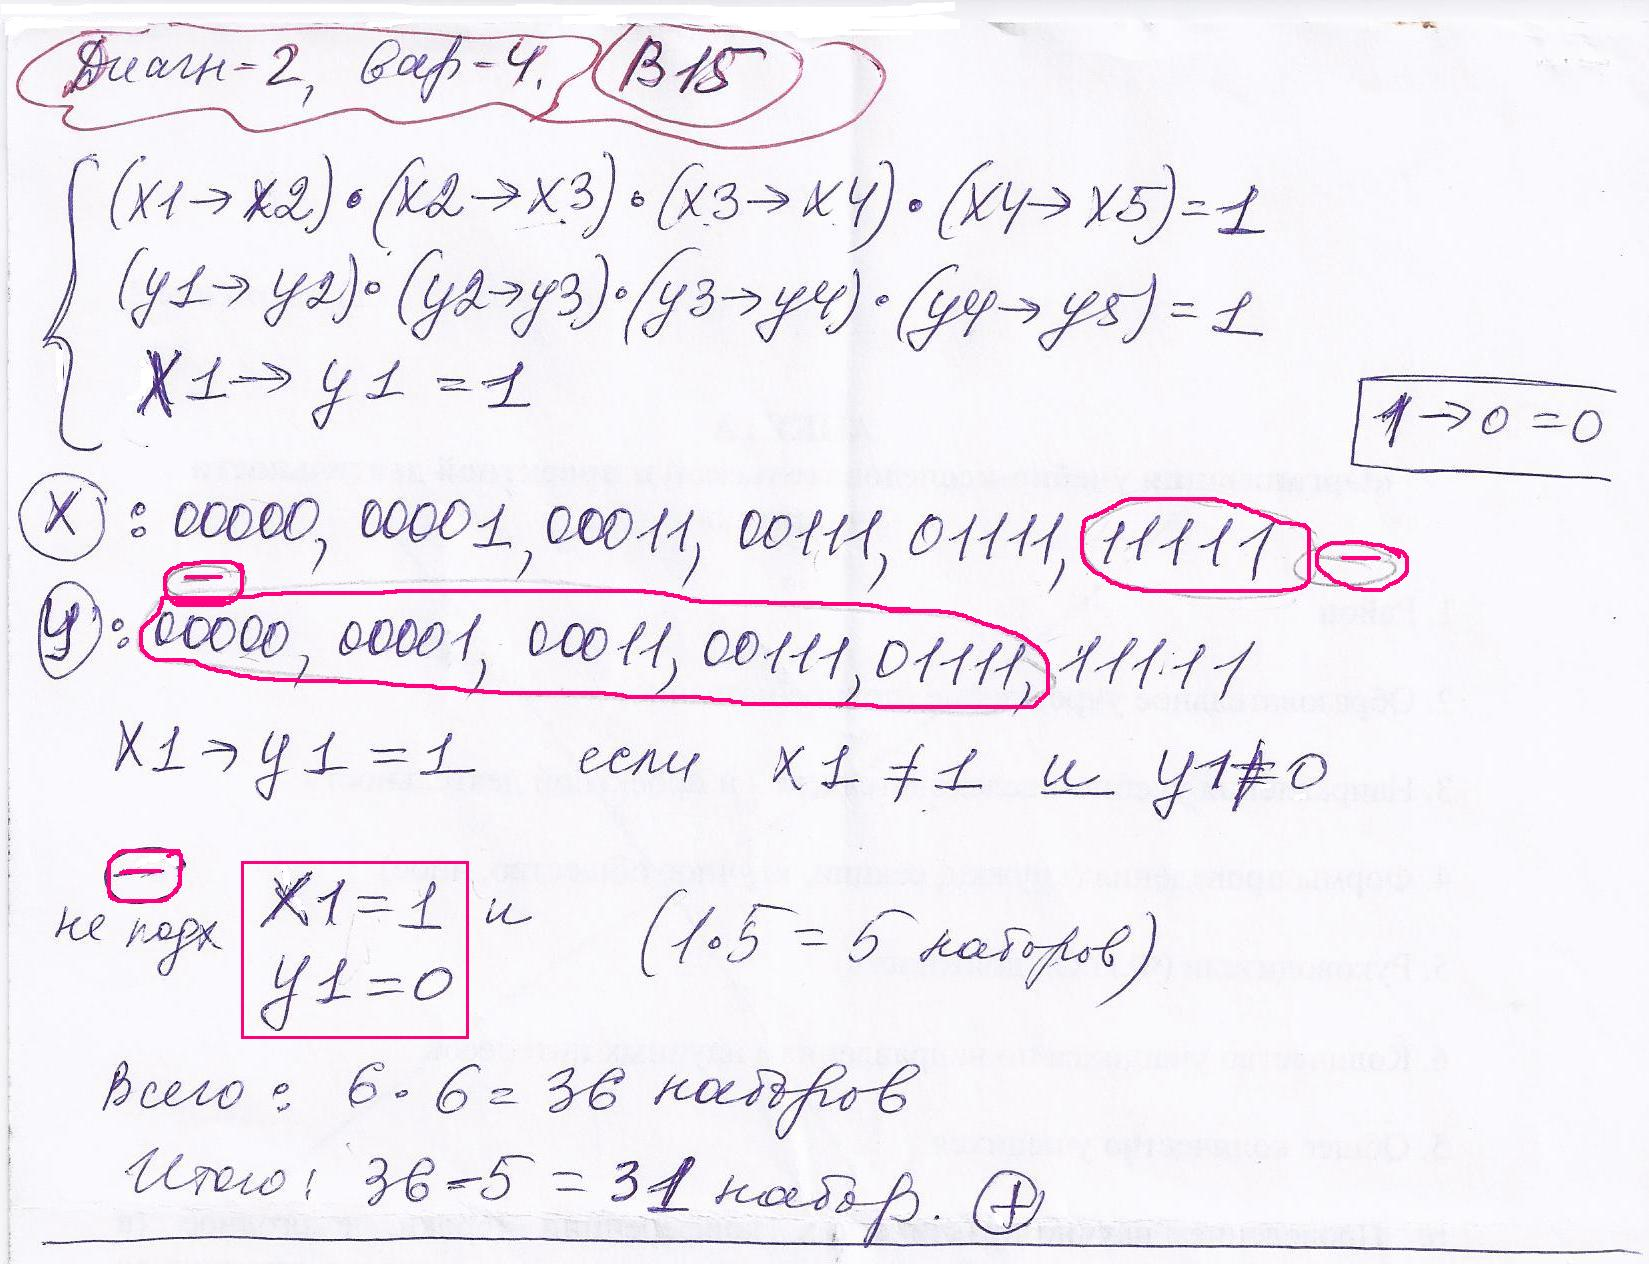 Диагн-2, вар-4. В15
(x1→x2)•(x2→x3)•(x3→x4)•(x4→x5)=1
(y1→y2)•(y2→y3)•(y3→y4)•(y4→y5)=1
x1→y1=1
1→0=0
X: 00000, 00001, 00011, 00111, 01111, 11111 −
−
Y: 00000, 00001, 00011, 00111, 01111, 11111
x1→y1=1 если x1≠1 и y1≠0
−
не подх x1=1 и (1•5=5 наборов)
y1=0
Всего: 6•6=36 наборов
Итого: 36-5=31 набор. +